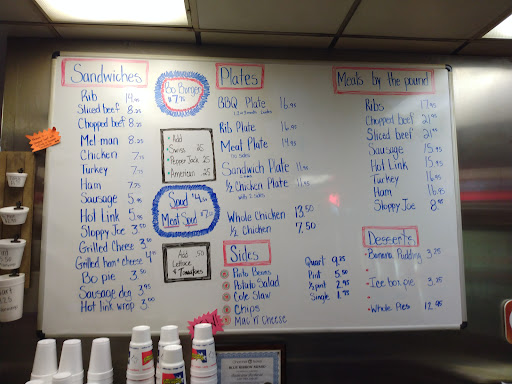 Sandwiches
Rib 14.95
Sliced beef 8.25
Chopped beef 8.25
Mel man 8.25
Chicken 7.75
Turkey 7.75
Ham 7.75
Sausage 5.95
Hot Link 5.95
Sloppy Joe 3.50
Grilled Cheese 3.50
Grilled ham & cheese 4.00
Bo pie 3.50
Sausage dog 3.95
Hot link wrap 3.95
Bo Burger
$7.75
• Add
• Swiss .25
• Pepper Jack .25
• American .25
Spud
Meat Spud
Add .50
Lettuce
& Tomatoes
Plates
BBQ Plate 16.95
Rib Plate 16.95
Meat Plate 14.95
Sandwich Plate 11.95
½ Chicken Plate
with 2 sides
Whole Chicken 13.50
½ Chicken 7.50
Sides
Pinto Beans
Potato Salad
Cole Slaw
Chips
Mac N' Cheese
Quart 9.25
Pint 5.50
½ pint 2.95
Single 1.95
Meats by the pound
Ribs 17.95
Chopped beef 21.95
Sliced beef 21.95
Sausage 15.95
Hot Link 15.95
Turkey 16.95
Ham 16.95
Sloppy Joe 8.95
Desserts
• Banana Pudding 3.25
• Ice box pie 3.25
• Whole Pies 12.95